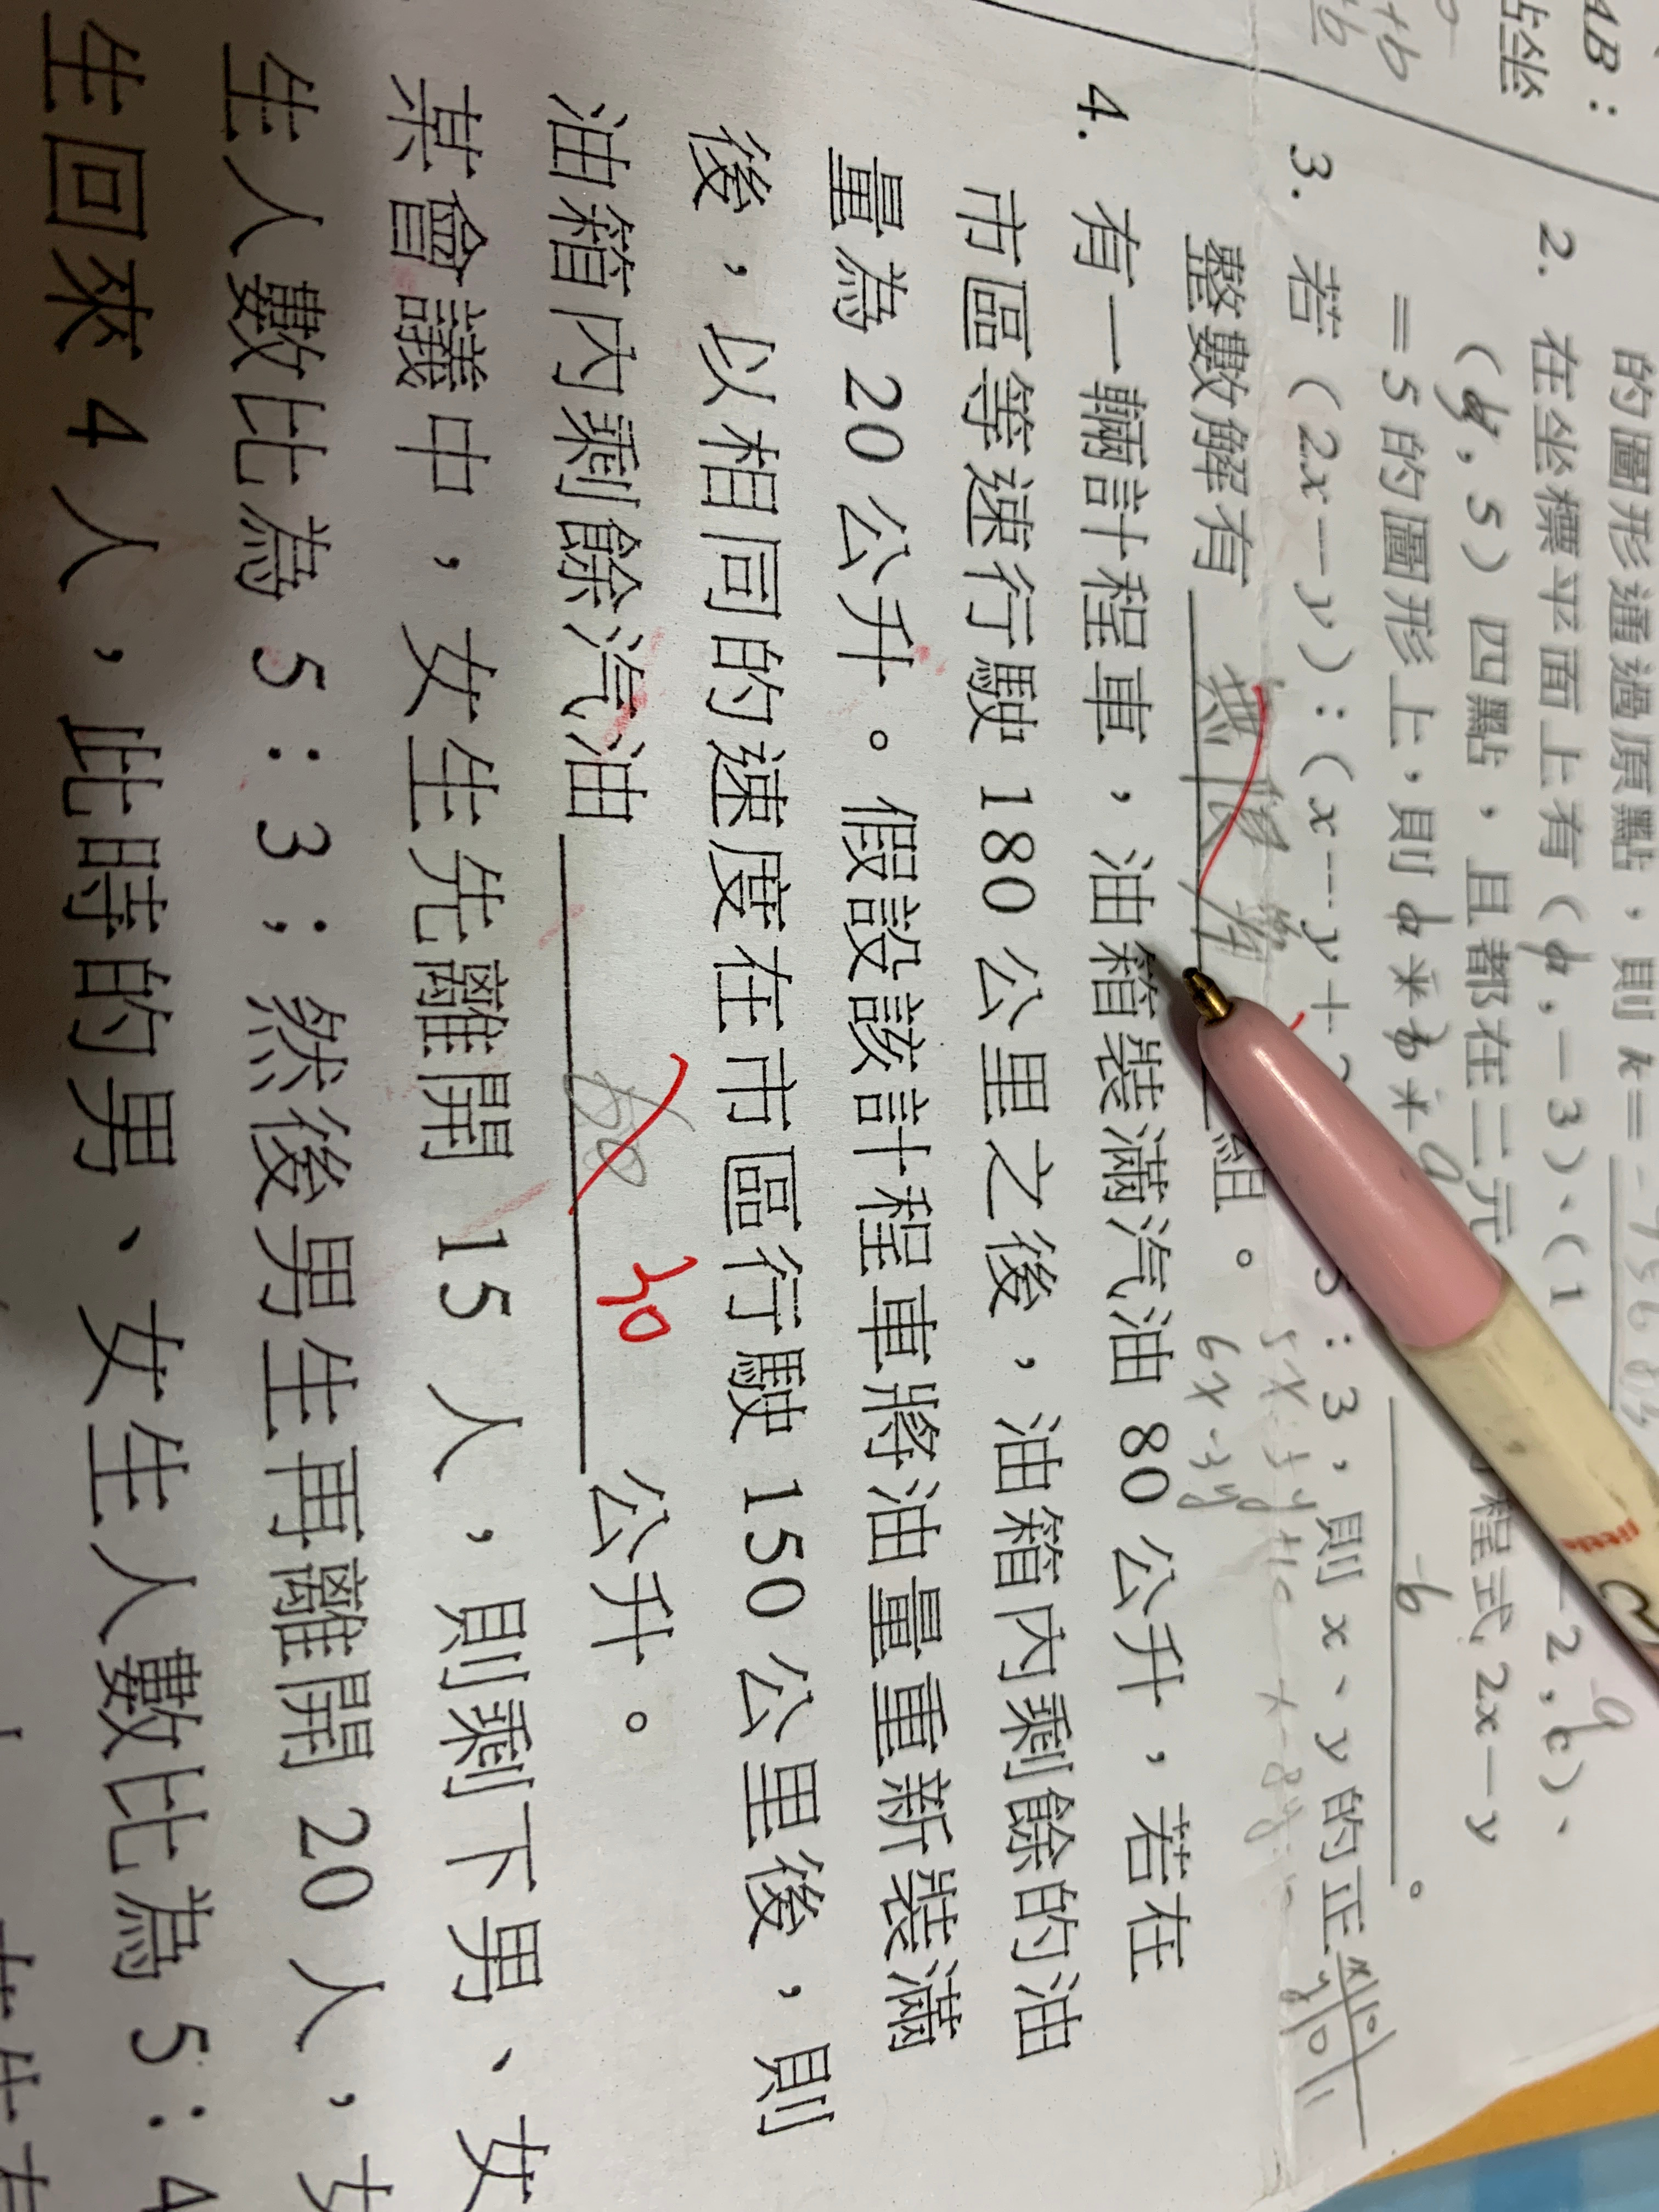 AB：
點坐
+b
的圖形通過原點，則 k＝
2. 在坐標平面上有（a，－3）、（1
－2，c）、
（b，5）四點，且都在二元
程式 2x－y
＝5 的圖形上，則
-6
。
3. 若（2x－y）：（x－y＋
5：3，則 x、y 的正
整數解有 無限多 組。
5x-5y+10
6x-3y
4. 有一輛計程車，油箱裝滿汽油 80 公升，若在
市區等速行駛 180 公里之後，油箱內剩餘的油
量為 20 公升。假設該計程車將油量重新裝滿
後，以相同的速度在市區行駛 150 公里後，則
油箱內剩餘汽油 50 30 公升。
某會議中，女生先離開 15 人，則剩下男、女
生人數比為 5：3；然後男生再離開 20 人，女
生回來 4 人，此時的男、女生人數比為 5：4